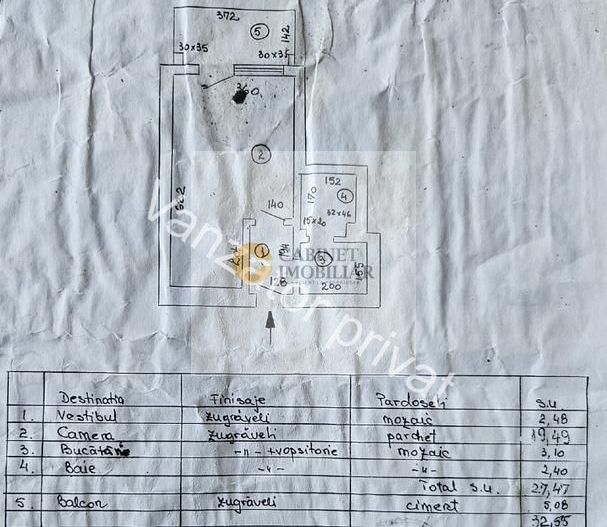 372
5
142
30x35
30x35
360
2
522
152
170
4
140
32x46
15x20
1
194
3
165
128
200
CABINET
IMOBILIAR
Vanzator privat
Destinatia Finisaje Pardoseli s.u.
1. Vestibul zugrăveli mozaic 2,48
2. Camera zugrăveli parchet 19,49
3. Bucătărie -"- +vopsitorie mozaic 3,10
4. Baie -"- -"- 2,40
Total s.u. 27,47
5. Balcon zugrăveli ciment 5,08
32,55